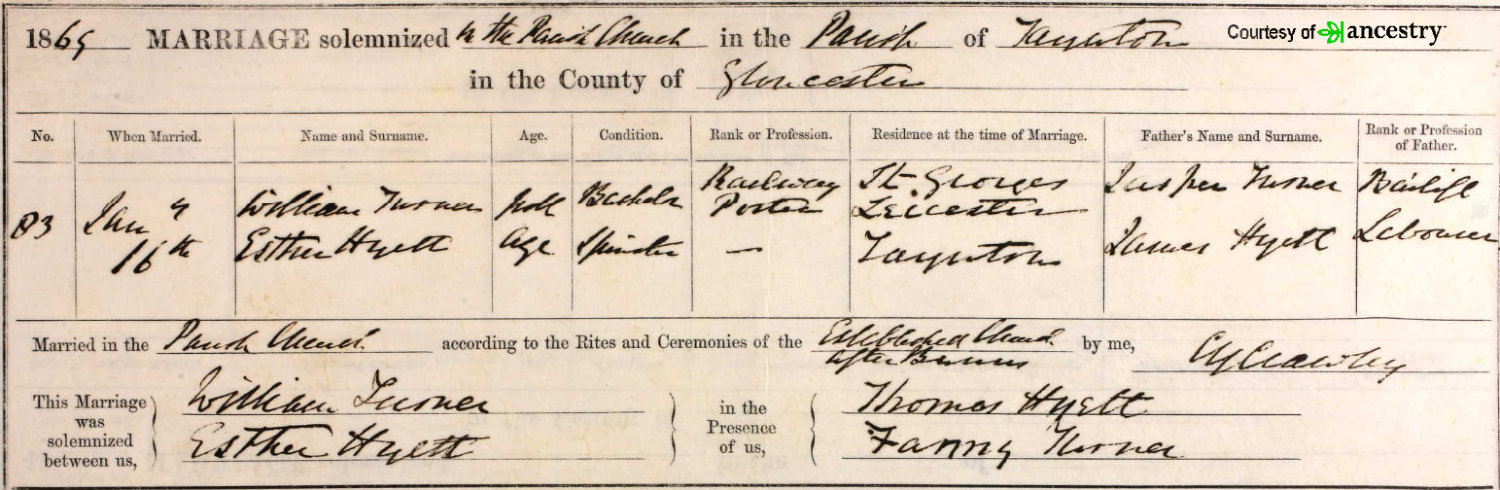 1869 MARRIAGE solemnized in the Parish Church in the Parish of Taynton
Courtesy of ancestry
in the County of Gloucester
No. When Married. Name and Surname. Age. Condition. Rank or Profession. Residence at the time of Marriage. Father's Name and Surname. Rank or Profession of Father.
83 Jany 16th William Turner Full Age Bachelor Railway Porter St. Georges Leicester Jasper Turner Bailiff
Esther Hyett Spinster — Taynton James Hyett Labourer
Married in the Parish Church according to the Rites and Ceremonies of the Established Church after Banns by me,
This Marriage was solemnized between us, William Turner Esther Hyett in the Presence of us, Thomas Hyett Fanny Turner